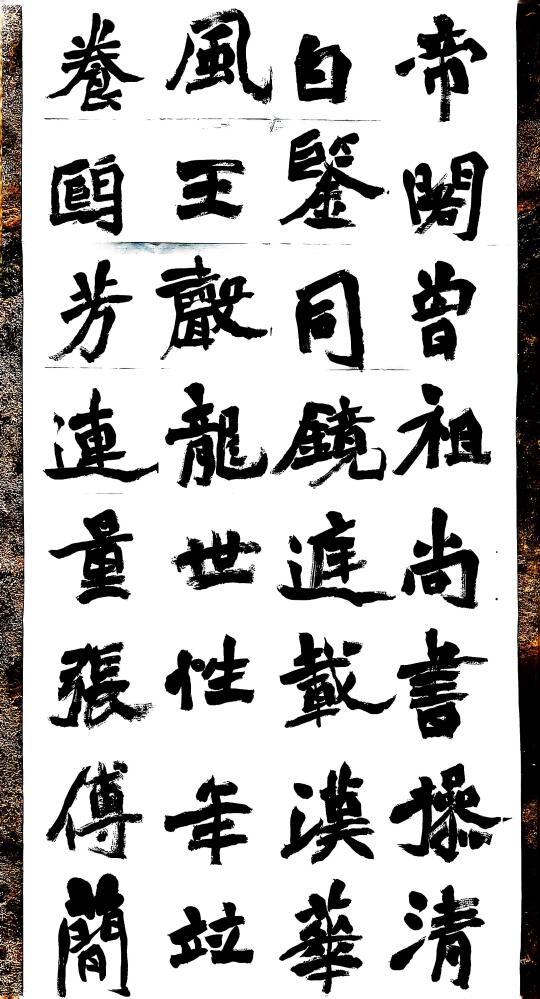 帝曾祖尚書操清
白鑒同鏡載漢華
風王聲龍世性年竝
養芳連量張傅簡